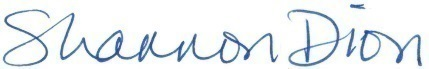 Shannon Dion